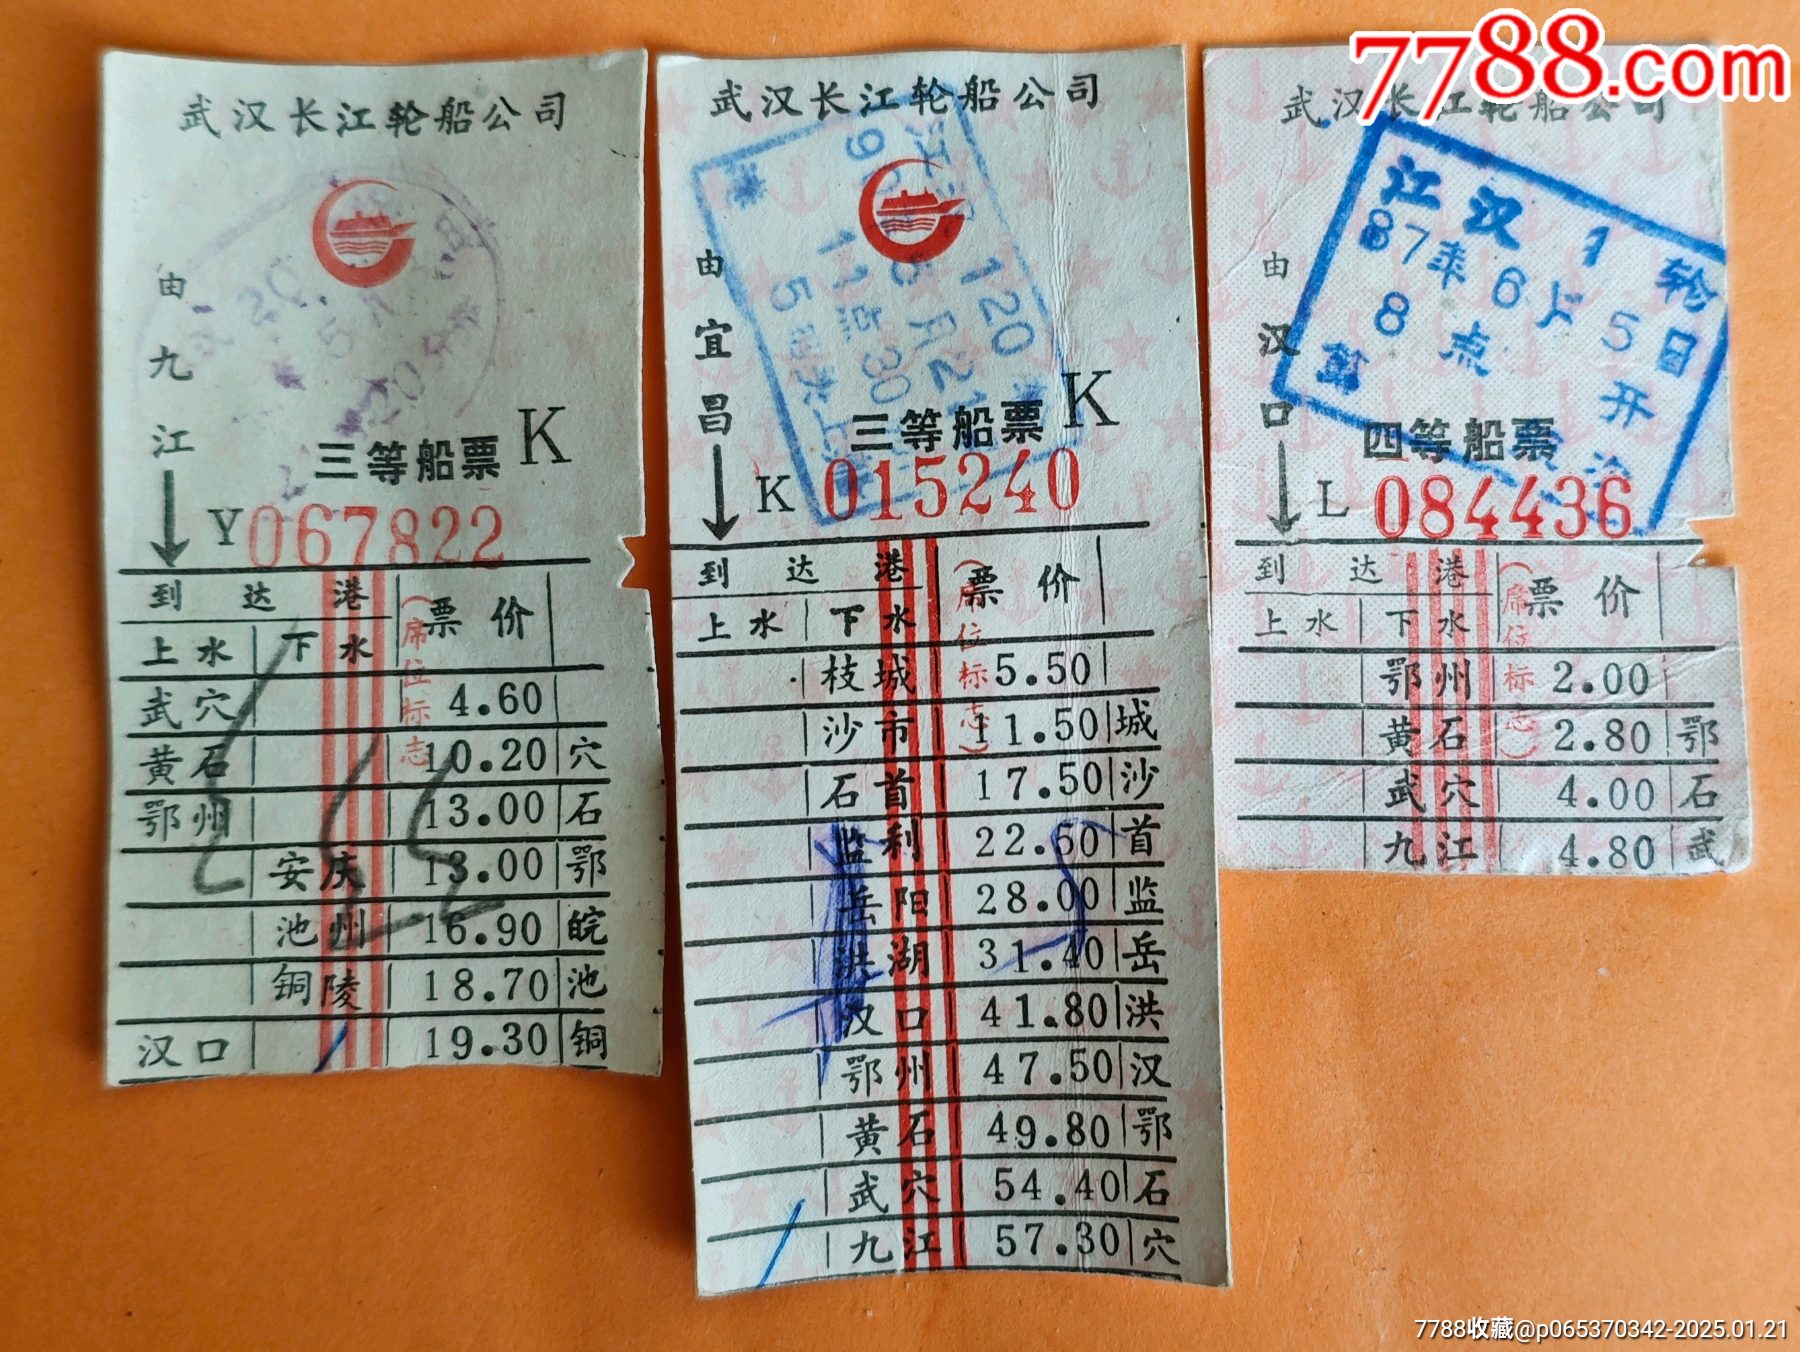 7788.com
武汉长江轮船公司
由九江
三等船票 K
Y 067822
到达港
票价
(席位标志
上水 下水
武穴 4.60
黄石 10.20 穴
鄂州 13.00 石
安庆 13.00 鄂
池州 16.90 皖
铜陵 18.70 池
汉口 19.30 铜
武汉长江轮船公司
由宜昌
三等船票 K
K 015240
120
到达港
票价
(席位标志)
上水 下水
枝城 5.50
沙市 11.50 城
石首 17.50 沙
监利 22.50 首
岳阳 28.00 监
洪湖 31.40 岳
汉口 41.80 洪
鄂州 47.50 汉
黄石 49.80 鄂
武穴 54.40 石
九江 57.30 穴
武汉长江轮船公司
江汉1轮
87年6月5日
8点开
由汉口
四等船票
L 084436
到达港
票价
(席位标志)
上水 下水
鄂州 2.00
黄石 2.80 鄂
武穴 4.00 石
九江 4.80 武
7788收藏@p065370342-2025.01.21